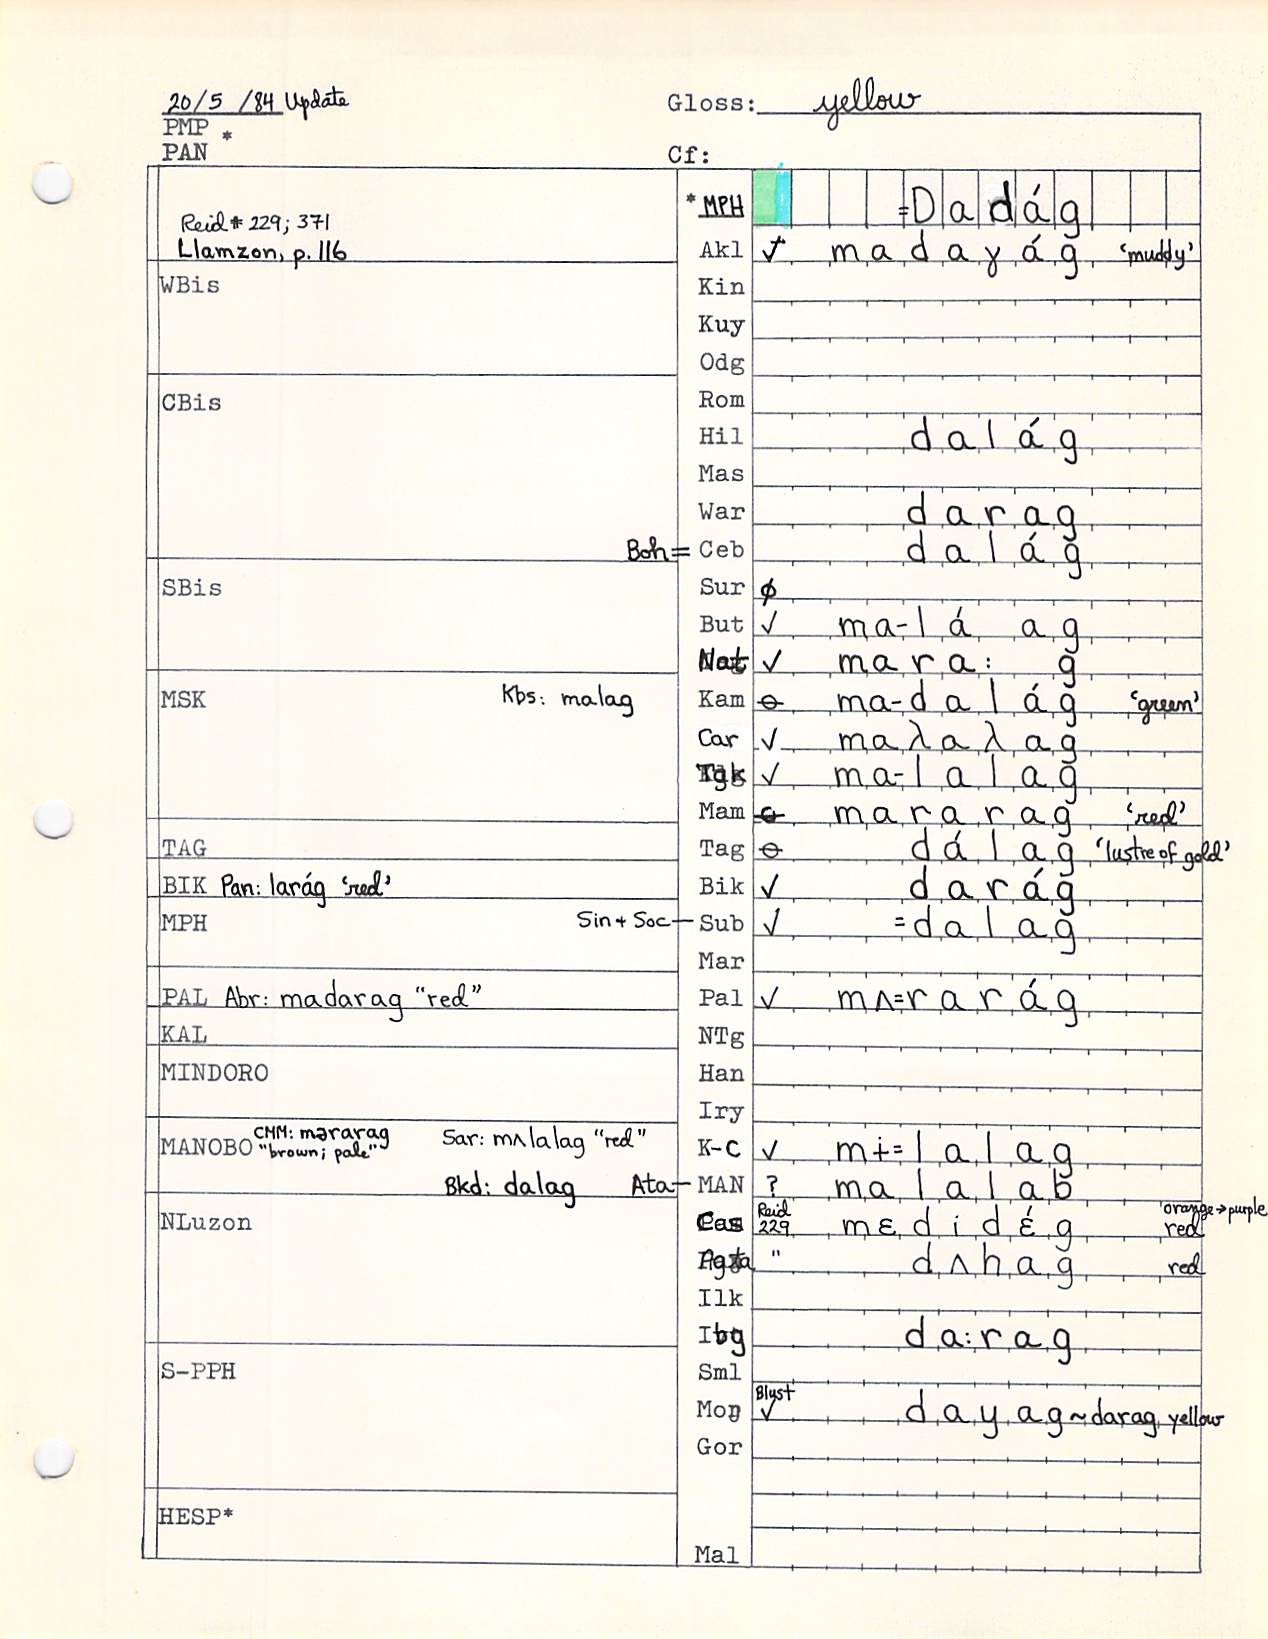 20/5 /84 Update
Gloss: yellow
PMP *
PAN
Cf:
Reid # 229; 371
Llamzon, p. 116
*MPH =Dadág
Akl ✓ madaɣág 'muddy'
WBis
Kin
Kuy
Odg
CBis
Rom
Hil dalág
Mas
War darag
Boh = Ceb dalág
SBis
Sur ∅
But ✓ ma-lá ag
Nat ✓ mara: g
MSK Kbs: malag
Kam ɵ ma-dalág 'green'
Car ✓ maλaλag
Tgk ✓ ma-lalag
Mam ɵ mararag 'red'
TAG
Tag ɵ dálag 'lustre of gold'
BIK Pan: larág 'red'
Bik ✓ darág
MPH Sin + Soc — Sub ✓ =dalag
Mar
PAL Abr: madarag "red"
Pal ✓ mʌ=rarág
KAL
NTg
MINDORO
Han
Iry
MANOBO CMM: mərarag "brown; pale"
Sar: mʌlalag "red"
K-C ✓ mɨ=lalag
Bkd: dalag Ata — MAN ? malalab
NLuzon
Cas Reid 229 mɛdidɛ́g orange→purple red
Agta " dʌhag red
Ilk
Ibg da:rag
S-PPH
Sml
Moŋ Blust ✓ dayag ~ darag yellow
Gor
HESP*
Mal